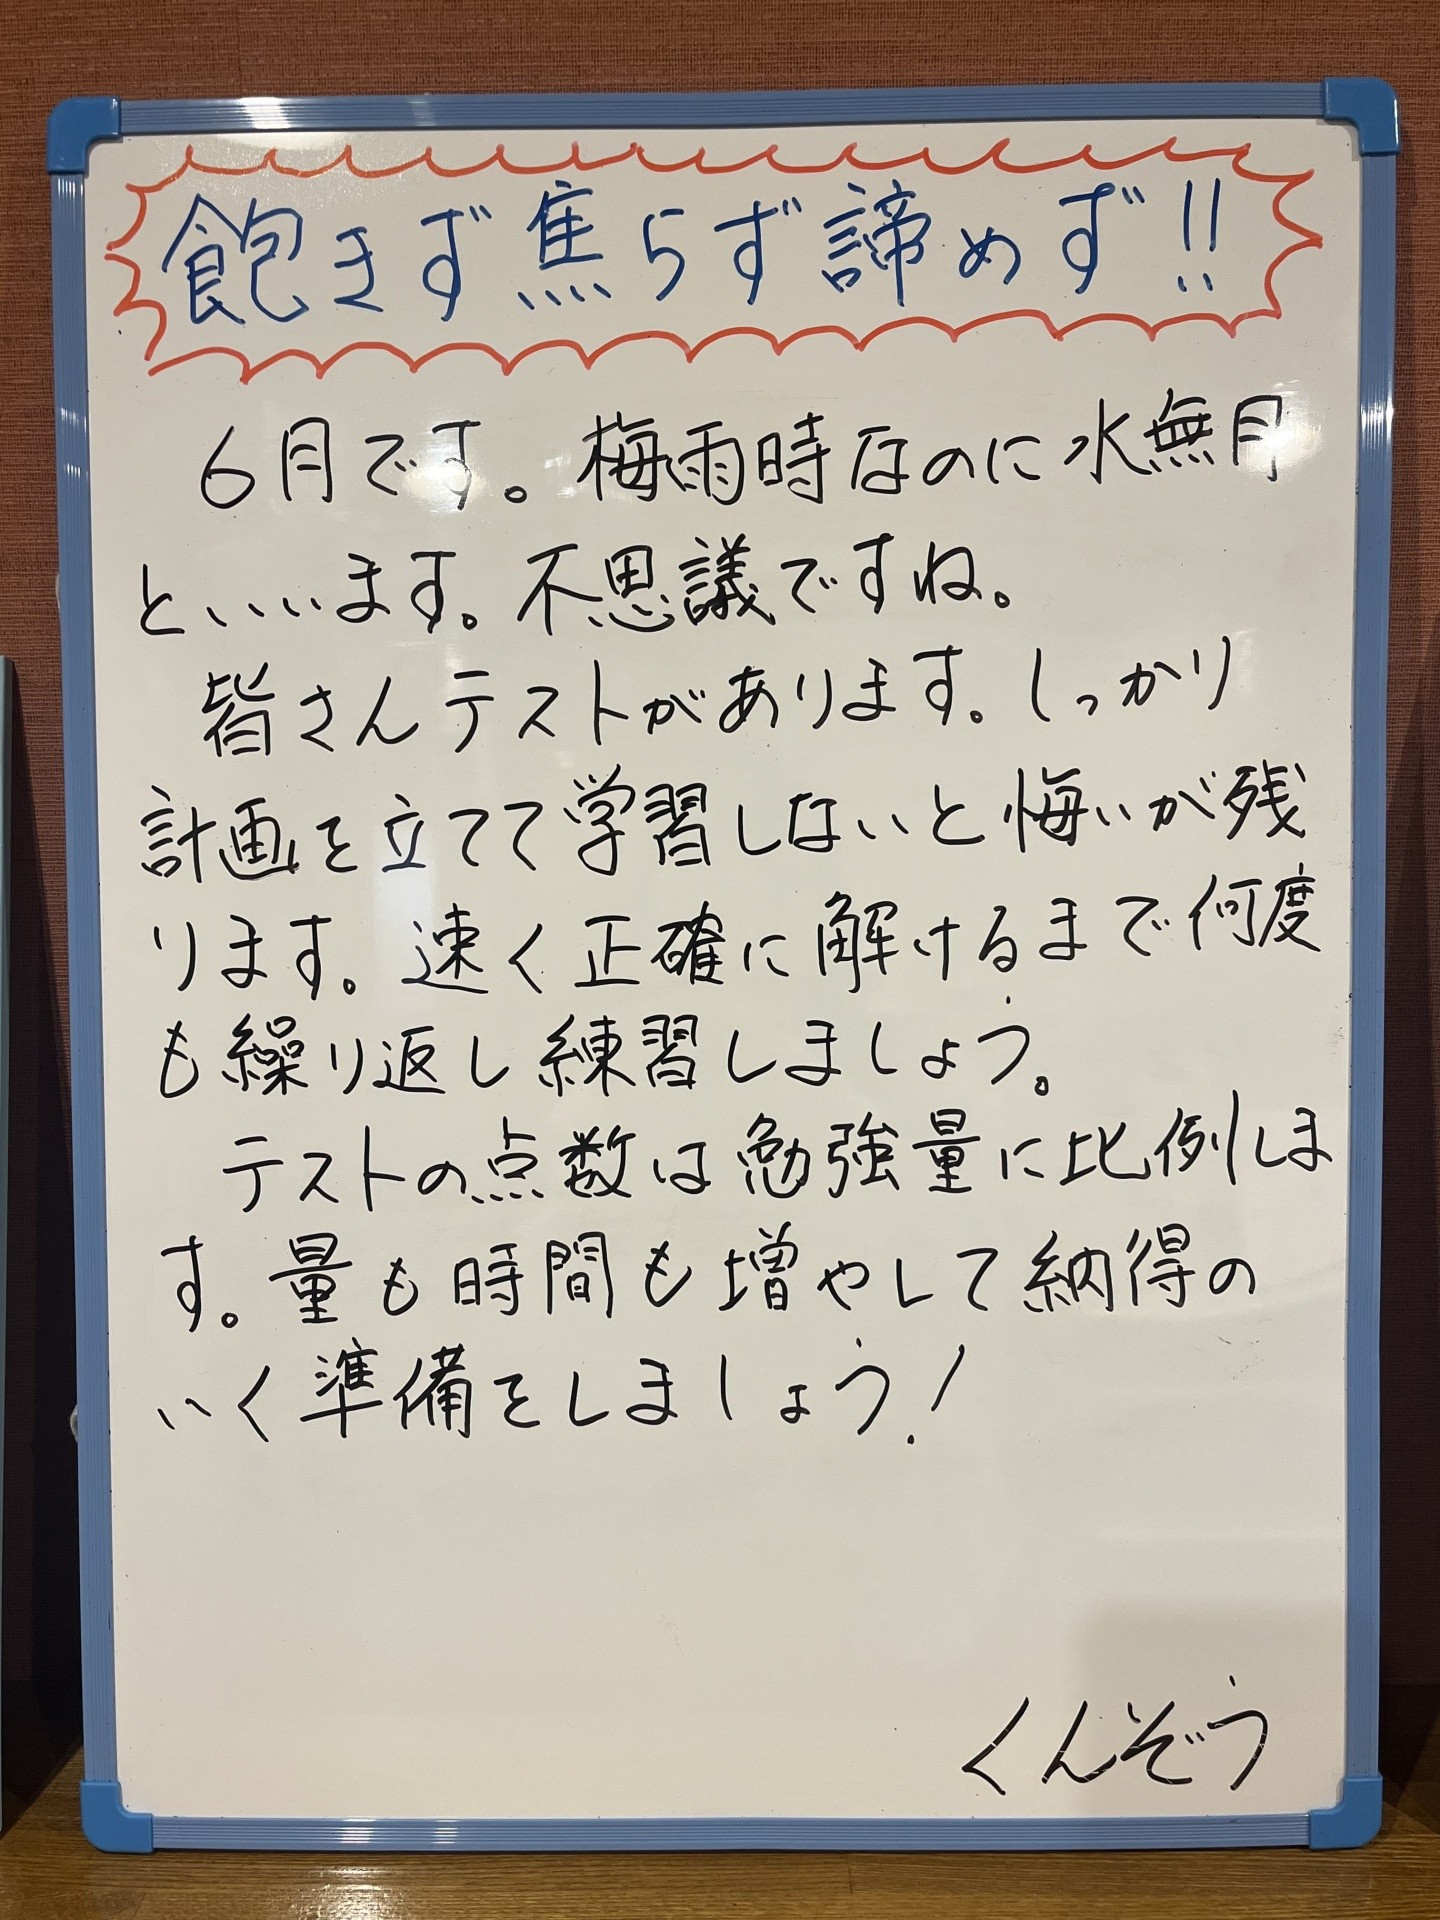 飽きず焦らず諦めず!!
6月です。梅雨時なのに水無月
といいます。不思議ですね。
皆さんテストがあります。しっかり
計画を立てて学習しないと悔いが残
ります。速く正確に解けるまで何度
も繰り返し練習しましょう。
テストの点数は勉強量に比例しま
す。量も時間も増やして納得の
いく準備をしましょう!
くんぞう